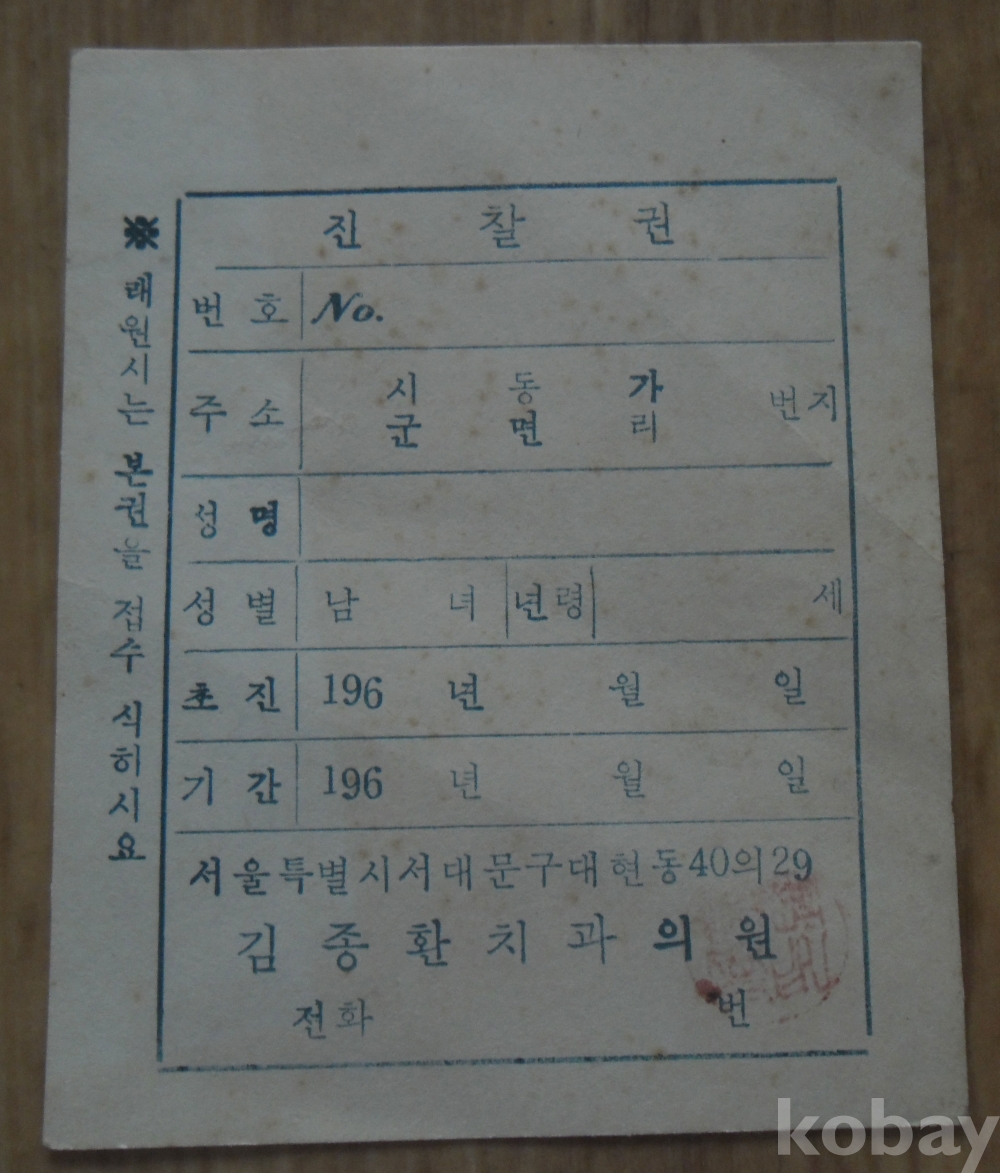 진 찰 권
번 호 No.
주 소 시 동 가 번지
군 면 리
성 명
성 별 남 녀 년령 세
초 진 196 년 월 일
기 간 196 년 월 일
서울특별시서대문구대현동40의29
김 종 환 치 과 의 원
전화 번
※ 래원시는 본권을 접수 식히시요
kobay